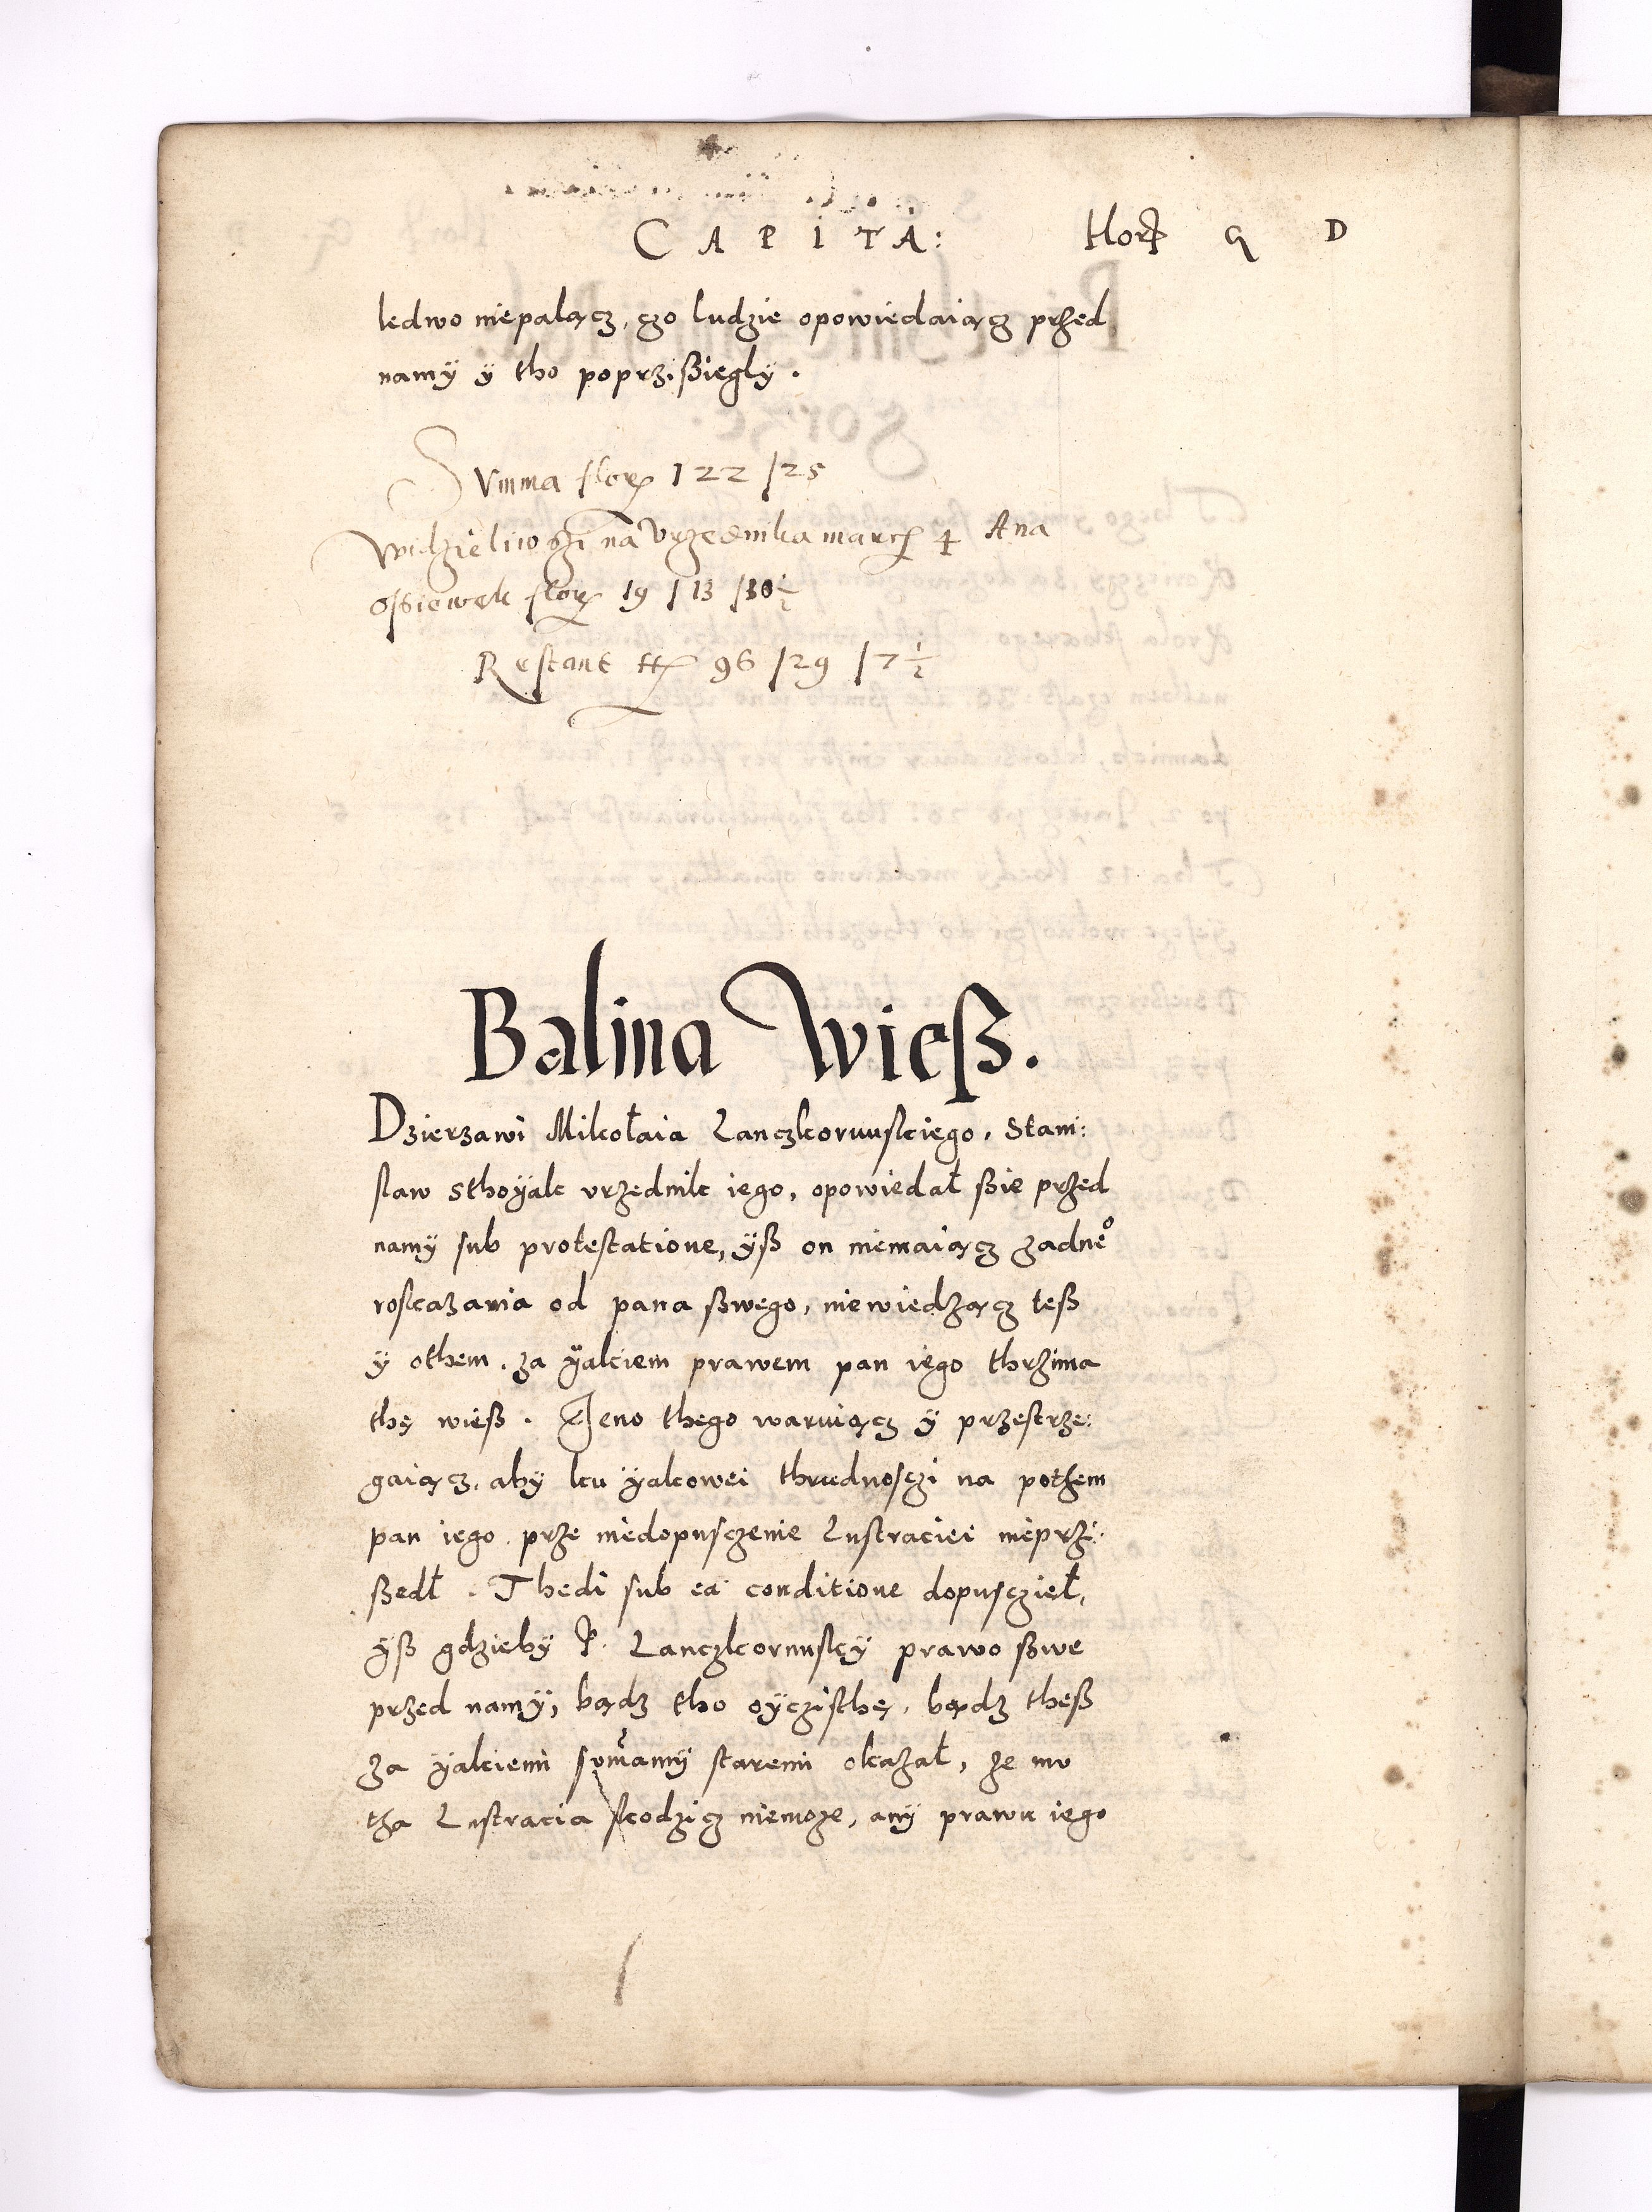 CAPITA: flor G D
ledwo niepaląCz, czo ludzie opowiedaiącz przed
namÿ ÿ tho poprzißięglÿ.
Summa flor 122 /25
Widzieliwozi na Vrzednika marc 4 Ana
ossiewek flor 19 / 13 /10 1/2
Restant fl 96 /29 /7 1/2
Balina Wieß.
Dzierzawi Mikołaia Lanczkorunskiego, Stani:
slaw Sthoÿak vrzednik iego, opowiedał ßie przed
namÿ sub protestatione, ÿß on niemaiącz zadneº
roskazania od pana ßwego, niewiedzącz teß
ÿ othem, za ÿakiem prawem pan iego thrzima
thę wieß. Jeno thego waruiącz ÿ przestrze:
gaiącz, abÿ ku ÿakowei thrudnosczi na pothem
pan iego, prze niedopusczenie Lustraciei nieprzi:
ßedł. Thedi sub ea conditione dopuscził,
ÿß gdziebÿ P. Lanczkorunskÿ prawo ßwe
przed namÿ, bądz tho oÿczisthe, bądz theß
za ÿakiemi sumamÿ staremi okazał, ze mu
tha Lustracia skodzicz niemoze, anÿ prawu iego